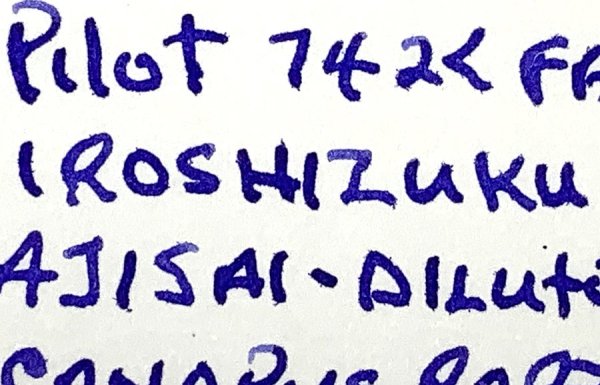 Pilot 742< FA
IROSHIZUKU
AJISAI-DILUTE